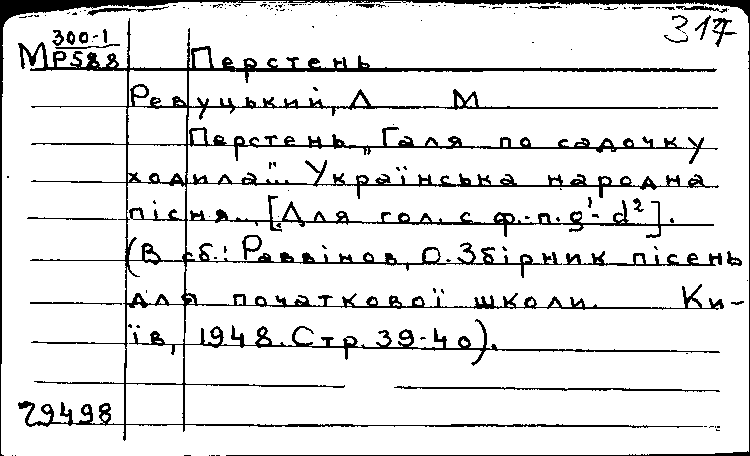 317
М 300-1 Перстень
Р588
Ревуцький, Л М
Перстень „Галя по садочку
ходила"... Українська народна
пісня. [Для гол. с ф.-п. g¹- d²].
(В сб.: Раввінов, О. Збірник пісень
для початкової школи. Ки-
їв, 1948. Стр. 39-40).
29498